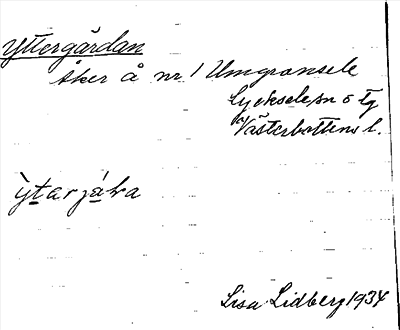 Yttergårdan
åker å nr 1 Umgransele
Lycksele sn o tg
Västerbottens l.
ỳtarjáka
Lisa Lidberg 1934